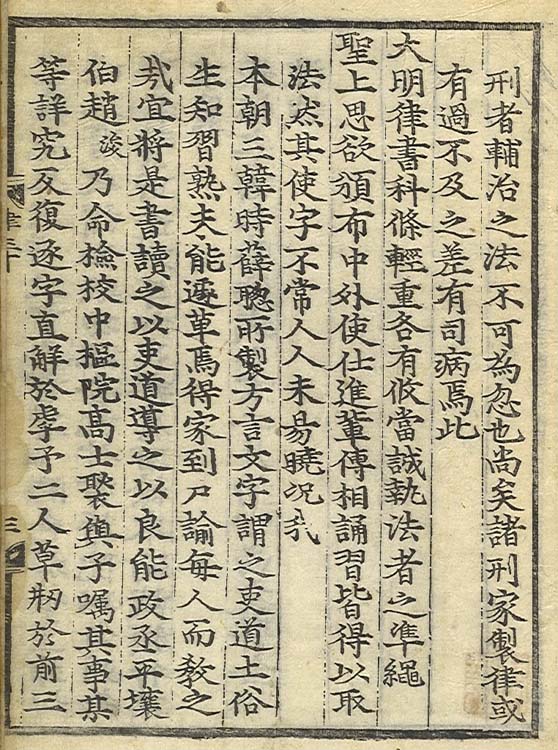 刑者輔治之法不可為忽也尚矣諸刑家製律或
有過不及之差有司病焉此
大明律書科條輕重各有攸當誠執法者之準繩
聖上思欲頒布中外使仕進輩傳相誦習皆得以取
法然其使字不常人人未易曉况我
本朝三韓時薛聰所製方言文字謂之吏道土俗
生知習熟夫能遽革焉得家到戶諭每人而教之
哉宜將是書讀之以吏道導之以良能政丞平壤
伯趙浚乃命檢校中樞院高士褧與予囑其事某
等詳究反復逐字直解於虖予二人草刱於前三
律三十
三